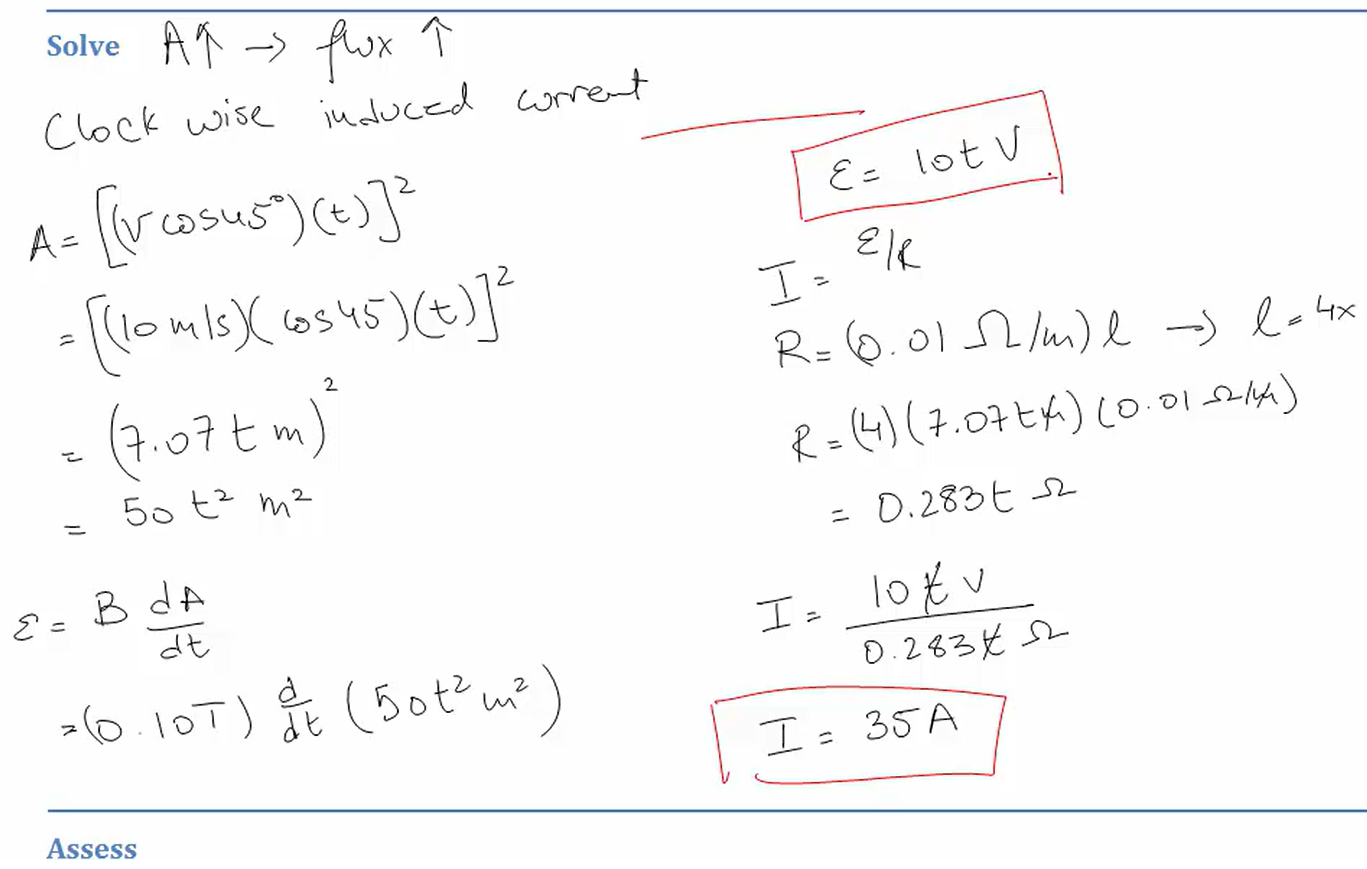 Solve A↑ → flux ↑
Clockwise induced current
A = [(v cos45°)(t)]²
= [(10 m/s)(cos45)(t)]²
= (7.07 t m)²
= 50 t² m²
ε = B dA/dt
= (0.10T) d/dt (50t² m²)
ε = 10t V
I = ε/R
R = (0.01 Ω/m) l → l = 4x
R = (4)(7.07t m)(0.01 Ω/m)
= 0.283t Ω
I = 10 t V / 0.283t Ω
I = 35 A
Assess